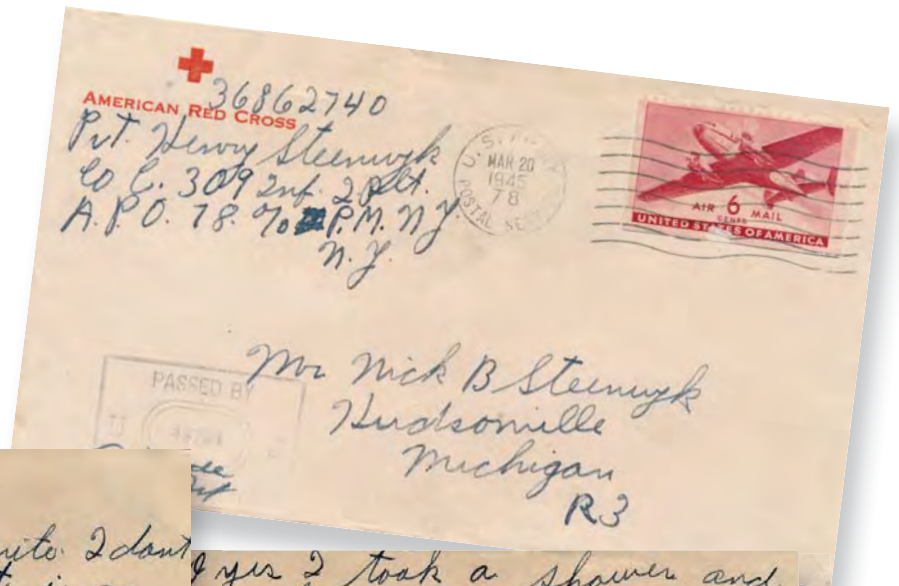 36862740
AMERICAN RED CROSS
Pvt. Henry Steenwyk
Co C. 309 Inf. 2 Plt.
A.P.O. 78. % P.M. N.Y.
N.Y.
U.S. ARMY
MAR 20
1945
78
POSTAL
AIR 6 MAIL
CENTS
UNITED STATES OF AMERICA
PASSED BY
Mr Nick B Steenwyk
Hudsonville
Michigan
R3
I dont
yes I took a shower and